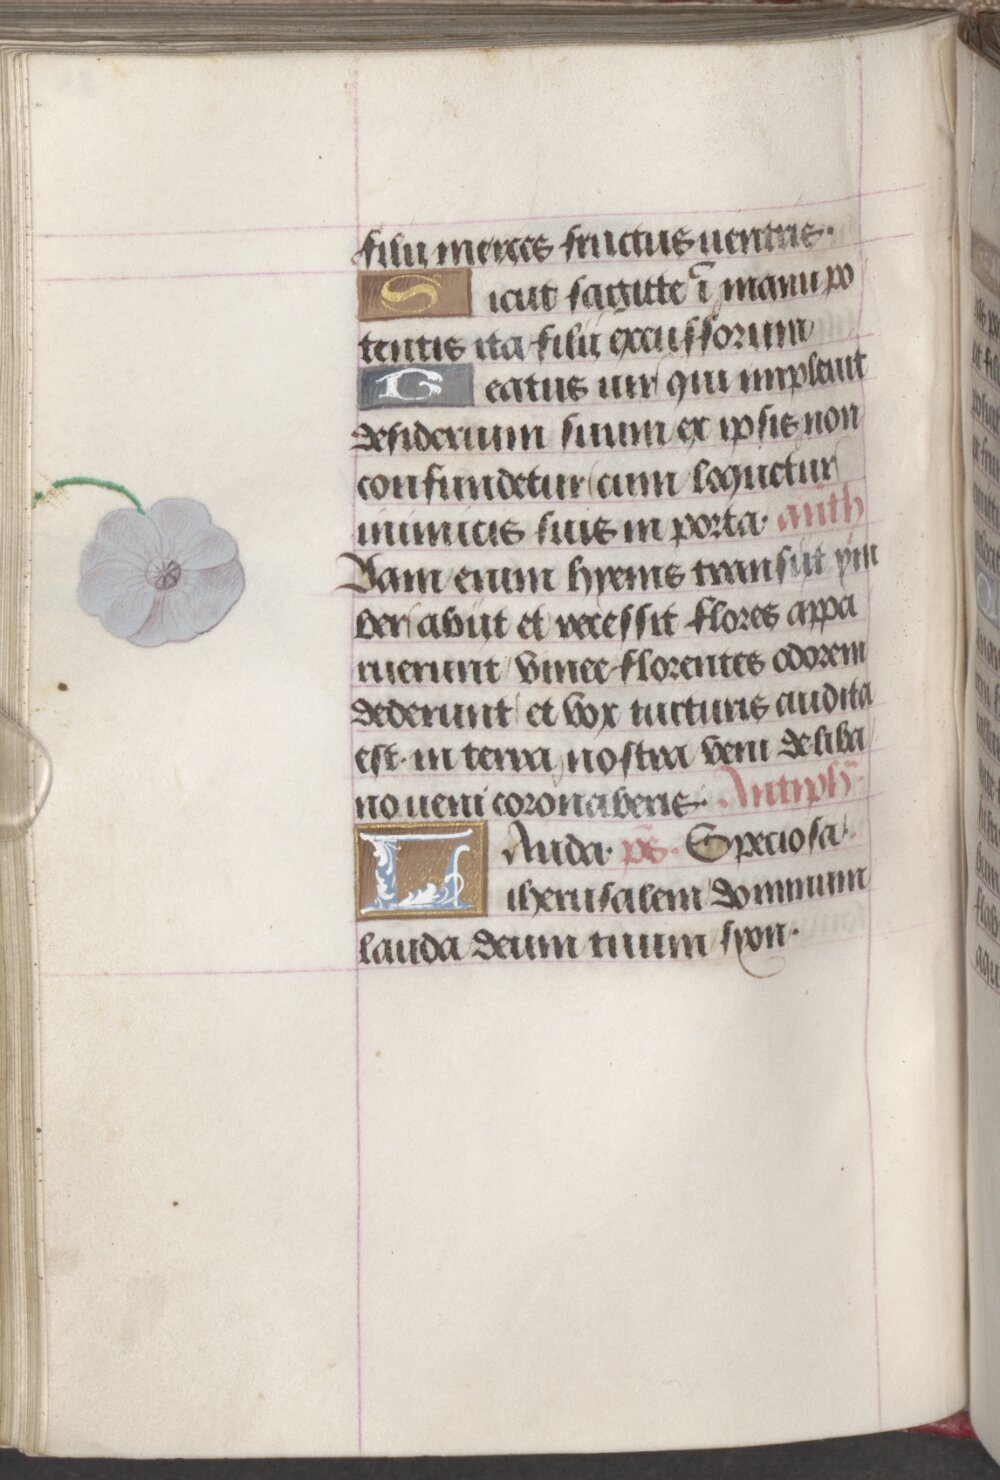 filii merces fructus uentris.
Sicut sagitte ī manu po
tentis ita filii excussorum
Beatus uir qui impleuit
desiderium suum ex ipsis non
confundetur cum loquetur
inimicis suis in porta. anth
Iam enim hyems transiit ym
ber abiit et recessit flores appa
ruerunt vinee florentes odorem
dederunt et vox turturis audita
est in terra nostra veni de liba
no ueni coronaberis. Antiph
LAuda. ps. Speciosa.
iherusalem dominum
lauda deum tuum syon.